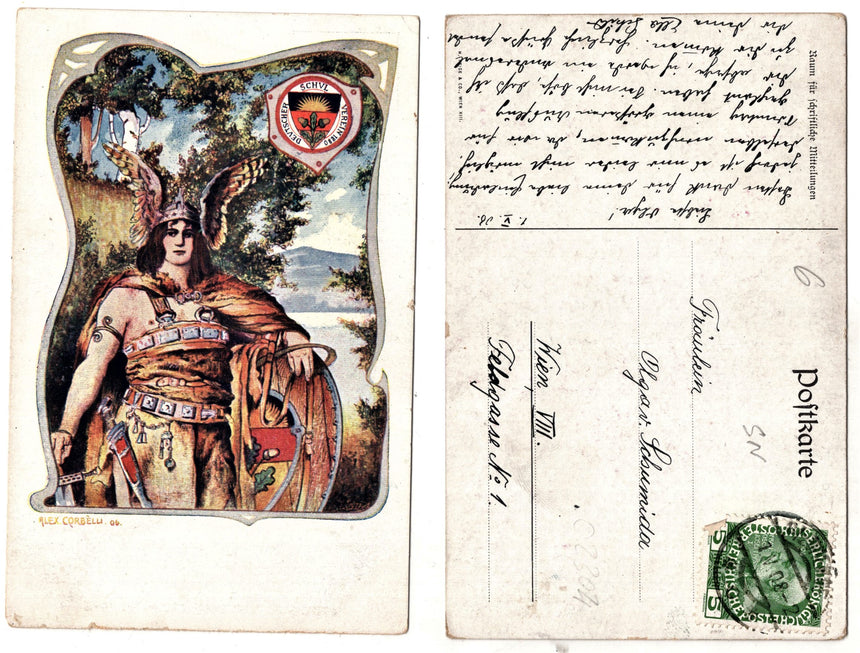 DEUTSCHER SCHVL VEREIN 1880
ALEX. CORBELLI. 06.
Raum für schriftliche Mitteilungen
1. V. 08.
Liebe Olga!
Besten Dank für deine liebe Einladung
jedoch ist es mir leider nicht möglich
derselben nachzukommen, da wir für
einen größeren Ausflug
geplant haben. Sei nicht böse, daß ich
dir absage, ich werde ein andermal
zu dir kommen. Herzliche Grüße sendet
dir deine Ella
Postkarte
Fräulein
Olga v. Schumida
Wien, VIII.
Feldgasse No 1.
6
SN
5
5